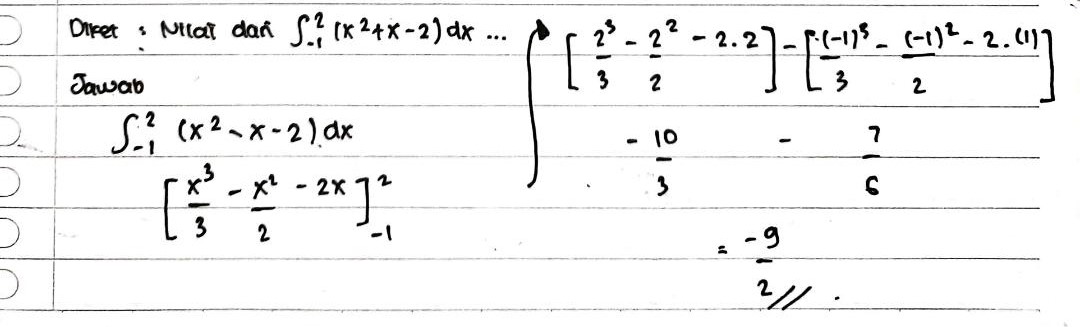 Diket : Nilai dari ∫₋₁² (x²+x-2) dx ...
Jawab
∫₋₁² (x²-x-2) dx
[x³/3 - x²/2 - 2x]₋₁²
[2³/3 - 2²/2 - 2.2] - [(-1)³/3 - (-1)²/2 - 2.(1)]
- 10/3 - 7/6
= -9/2 //.